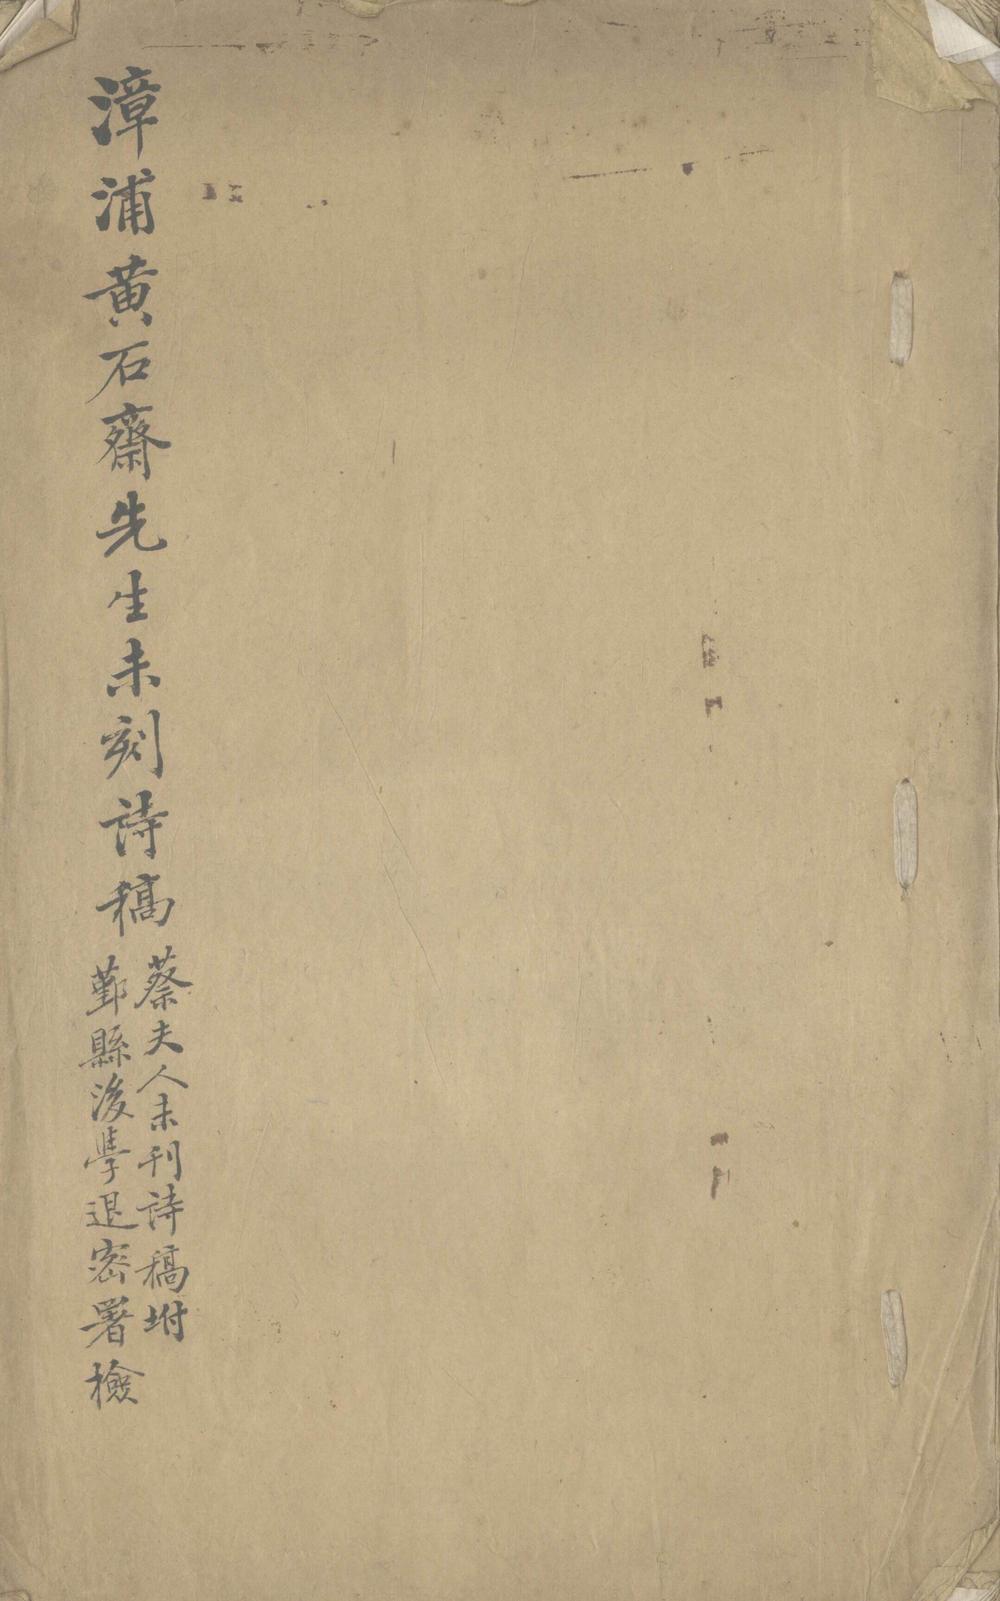 漳浦黃石齋先生未刻詩稿
蔡夫人未刊詩稿坿
鄞縣後學退密署檢